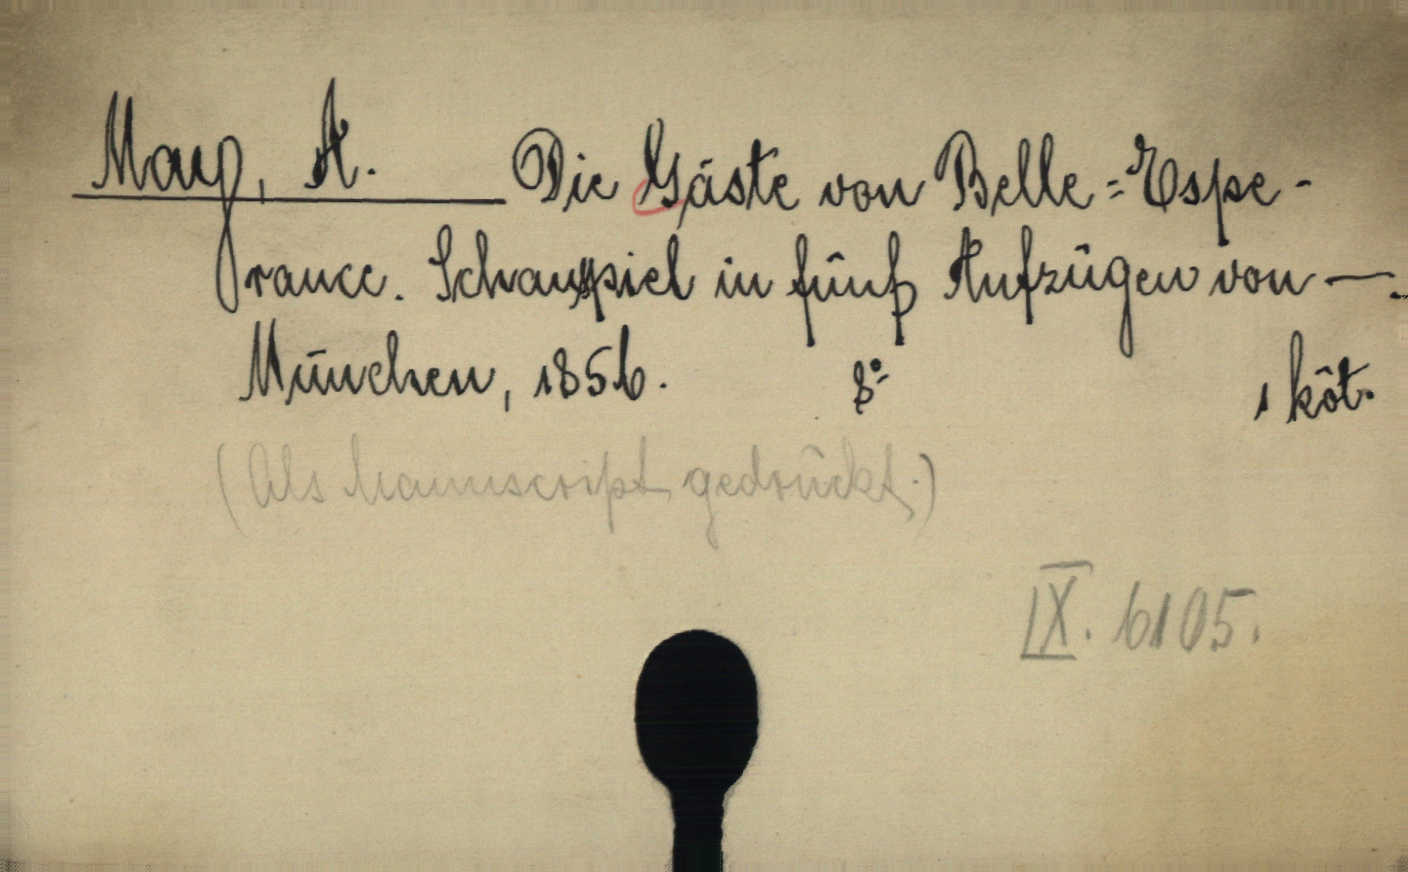 May, A. Die Gäste von Belle=Espe-
rance. Schauspiel in fünf Aufzügen von —.
München, 1856. 8° 1 köt.
(Als Manuscript gedrückt.)
IX. 6105.